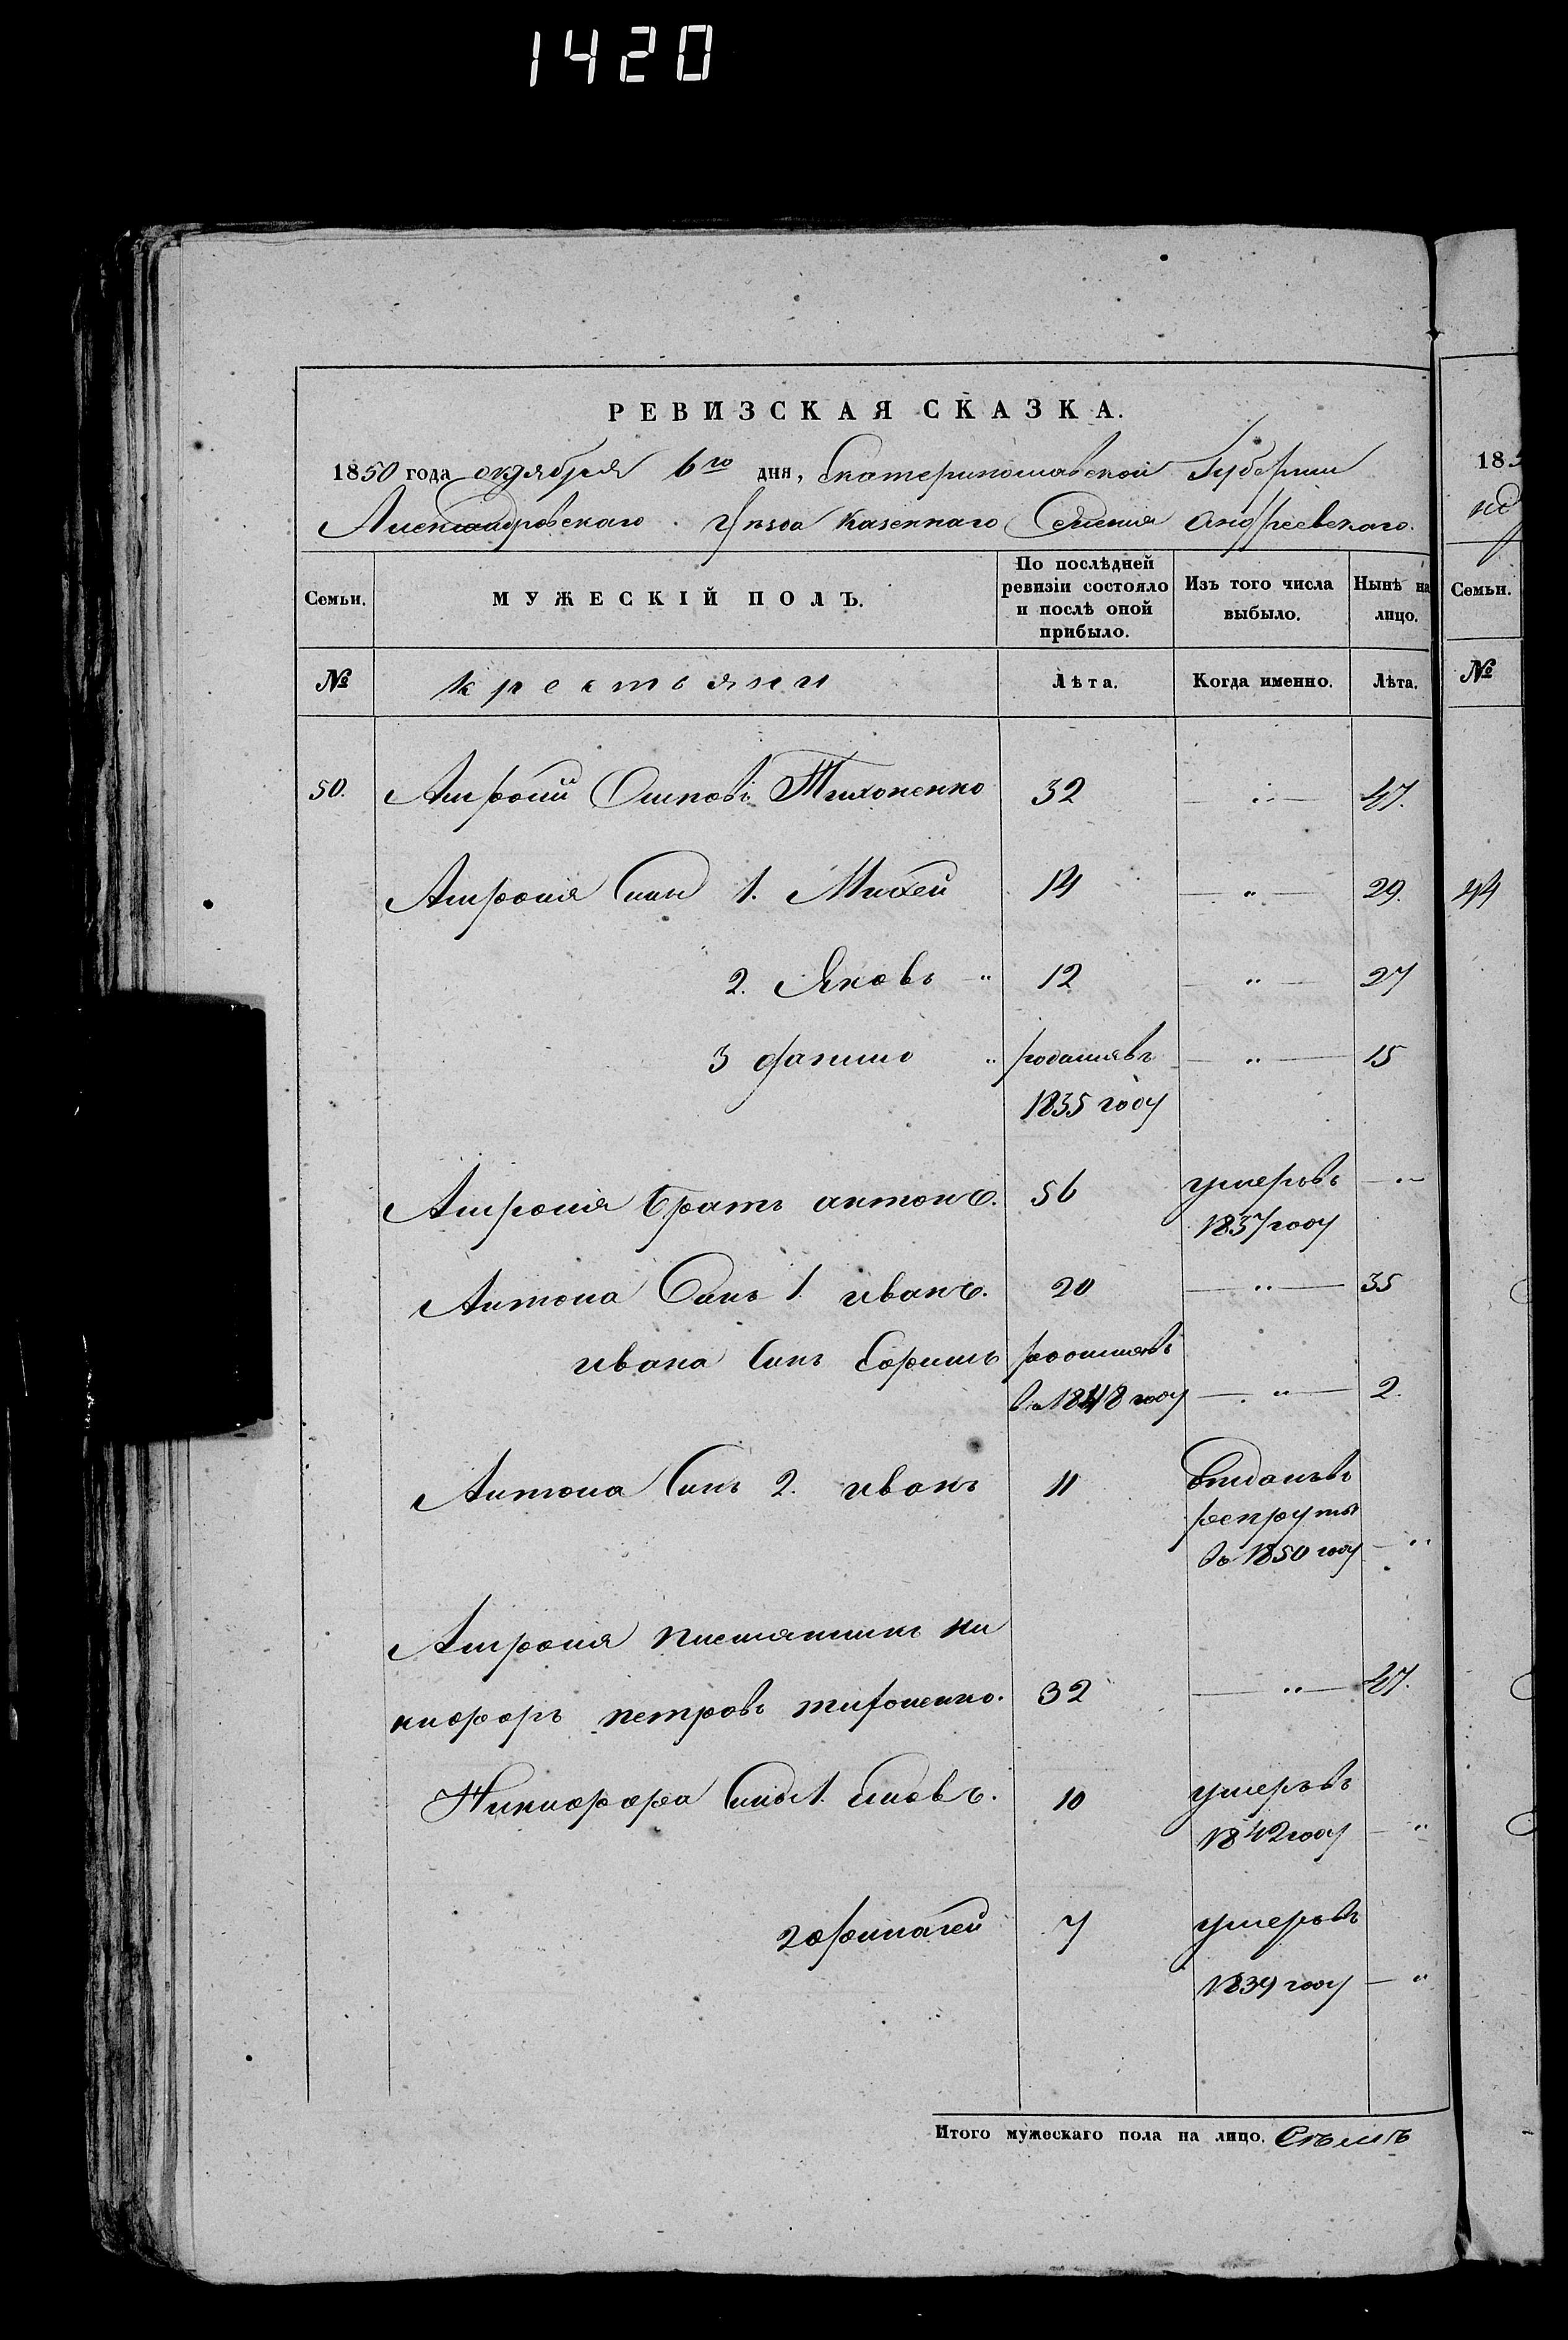 1420
РЕВИЗСКАЯ СКАЗКА.
1850 года октября 6го дня, Екатеринославской Губернии
Александровского Уезда Казенного Селения Андреевского.
Семьи. МУЖЕСКІЙ ПОЛЪ. По послѣдней ревизіи состояло и послѣ оной прибыло. Изъ того числа выбыло. Нынѣ на лицо.
№ крестьяни Лѣта. Когда именно. Лѣта.
50. Тихоненко 32 47.
Сини 1. Михей 14 29.
2. Яковъ 12 27
3 родился въ 15
1835 году
братъ антонъ. 56 умеръ въ
1837 году
Антона Синъ 1. иванъ. 20 35
ивана Синъ родился въ
въ 1848 году 2.
Антона Синъ 2. иванъ 11
рекруты
въ 1850 году
племянникъ ни
кифоръ петровъ тихоненко. 32 47.
Никифора Сини 1. 10 умеръ въ
1842 году
2 7 умеръ въ
1839 году
Итого мужескаго пола на лицо. Семъ
18
Семьи.
№
44